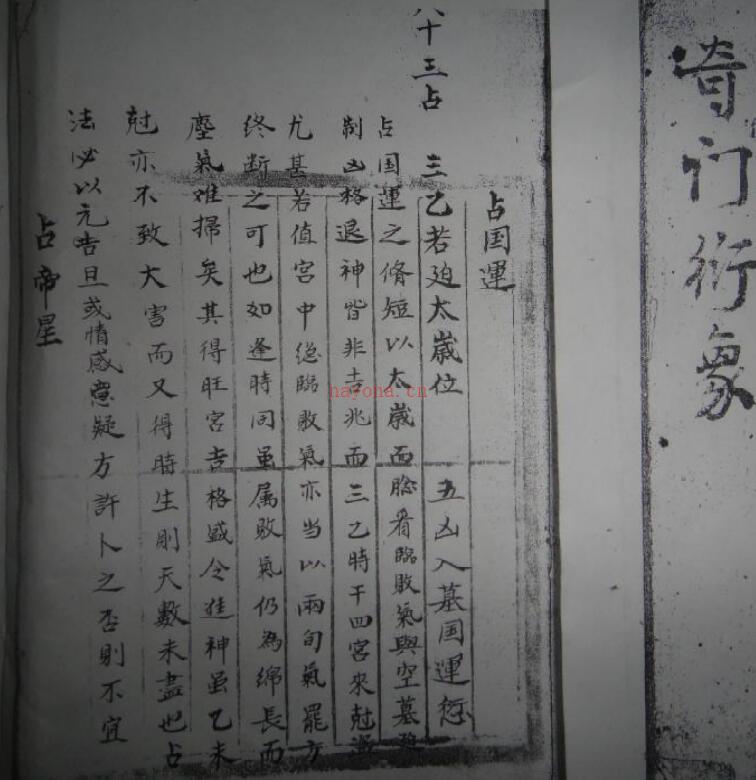 奇门衍象
八十三占
占国运
三乙若廹太崴位 五凶入墓国运愆
占国運之脩短以太崴而胗看臨敗氣與空墓
制凶格退神皆非吉兆而三乙時干四宮來尅
尤甚若值宮中総臨敗氣亦当以兩旬氣罷方
终断之可也如逢時同虽属敗氣仍為绵長而
塵氣难掃矣其得旺宮吉格盛令神虽乙未
尅亦不致大害而又得時生則天數未盡也占
法必以元吉旦或情感意疑方許卜之否則不宜
占帝星
hayona.cn